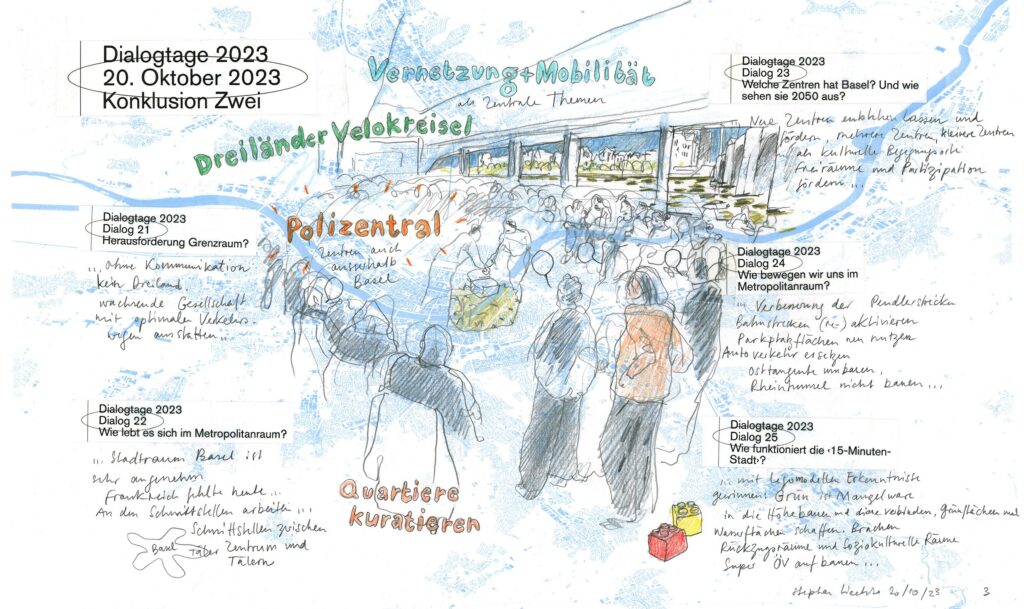 Dialogtage 2023
20. Oktober 2023
Konklusion Zwei
Vernetzung + Mobilität
als zentrale Themen
Dreiländer Velokreisel
Polizentral
Zentren auch
ausserhalb
Basel
Quartiere
kuratieren
Dialogtage 2023
Dialog 21
Herausforderung Grenzraum?
... ohne Kommunikation
kein Dreiland.
wachsende Gesellschaft
mit optimalen Verkehrs-
wegen ausstatten...
Dialogtage 2023
Dialog 22
Wie lebt es sich im Metropolitanraum?
... Stadtraum Basel ist
sehr angenehm
Frankreich fehlte heute...
An den Schnittstellen arbeiten...
Schnittstellen zwischen
Basel Täler Zentrum und
Tälern
Dialogtage 2023
Dialog 23
Welche Zentren hat Basel? Und wie
sehen sie 2050 aus?
... Neue Zentren entstehen lassen und
fördern, mehrere Zentren, kleinere Zentren
als kulturelle Begegnungsorte
Freiräume und Partizipation
fördern...
Dialogtage 2023
Dialog 24
Wie bewegen wir uns im
Metropolitanraum?
... Verbesserung der Pendlerstrecken
Bahnstrecken (re-) aktivieren
Parkplatzflächen neu nutzen
Autoverkehr ersetzen
Osttangente umbauen,
Rheintunnel nicht bauen...
Dialogtage 2023
Dialog 25
Wie funktioniert die ‹15-Minuten-
Stadt›?
... mit Legomodellen Erkenntnisse
gewinnen: Grün ist Mangelware
in die Höhe bauen und diese verbinden, Grünflächen und
Wasserflächen schaffen. Brachen
Rückzugsräume und Soziokulturelle Räume
Super ÖV aufbauen...
20/10/23
3